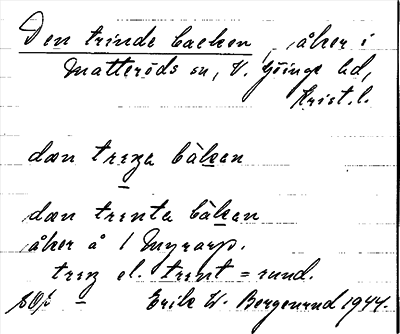 Den trinde backen, åker i
Matteröds sn, V. Göinge hd,
Krist. l.
dæn trɪna bàkan
dæn trinta bàkan
åker å 1 Myrarp.
trin el. trint = rund.
Erik W. Bergenrud 1944.